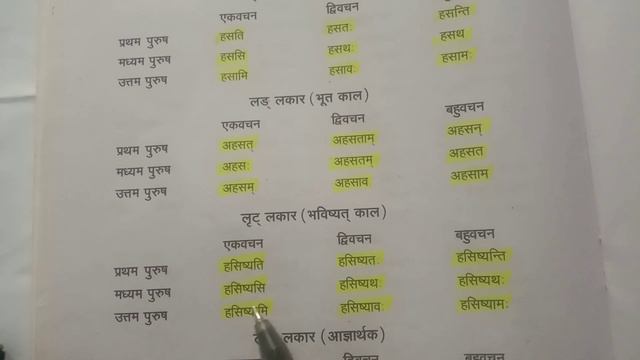 एकवचन द्विवचन
प्रथम पुरुष हसति हसतः हसन्ति
मध्यम पुरुष हससि हसथः हसथ
उत्तम पुरुष हसामि हसावः हसामः
लङ् लकार (भूत काल)
एकवचन द्विवचन बहुवचन
प्रथम पुरुष अहसत् अहसताम् अहसन्
मध्यम पुरुष अहसः अहसतम् अहसत
उत्तम पुरुष अहसम् अहसाव अहसाम
लृट् लकार (भविष्यत् काल)
एकवचन द्विवचन बहुवचन
प्रथम पुरुष हसिष्यति हसिष्यतः हसिष्यन्ति
मध्यम पुरुष हसिष्यसि हसिष्यथः हसिष्यथः
उत्तम पुरुष हसिष्यावः हसिष्यामः
लकार (आज्ञार्थक)
द्विवचन बहुवचन